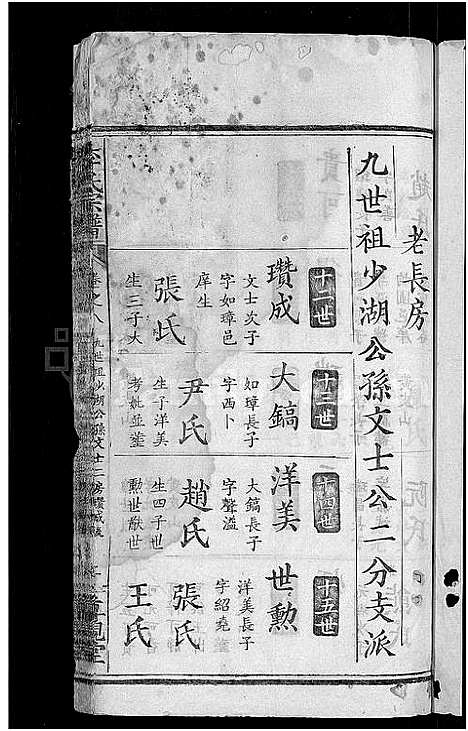 老長房
九世祖少湖公孫文士公二分支派
十二世
瓚成
文士次子
字如璋邑
庠生
張氏
生三子大
十三世
大鎬
如璋長子
字西卜
尹氏
生子洋美
考妣並塟
十四世
洋美
大鎬長子
字聲溢
趙氏
生四子世
勲世猷世
十五世
世勲
洋美長子
字紹堯塟
張氏
王氏
氏宗譜
卷之八
九世祖少湖公孫文士二房瓚成枝